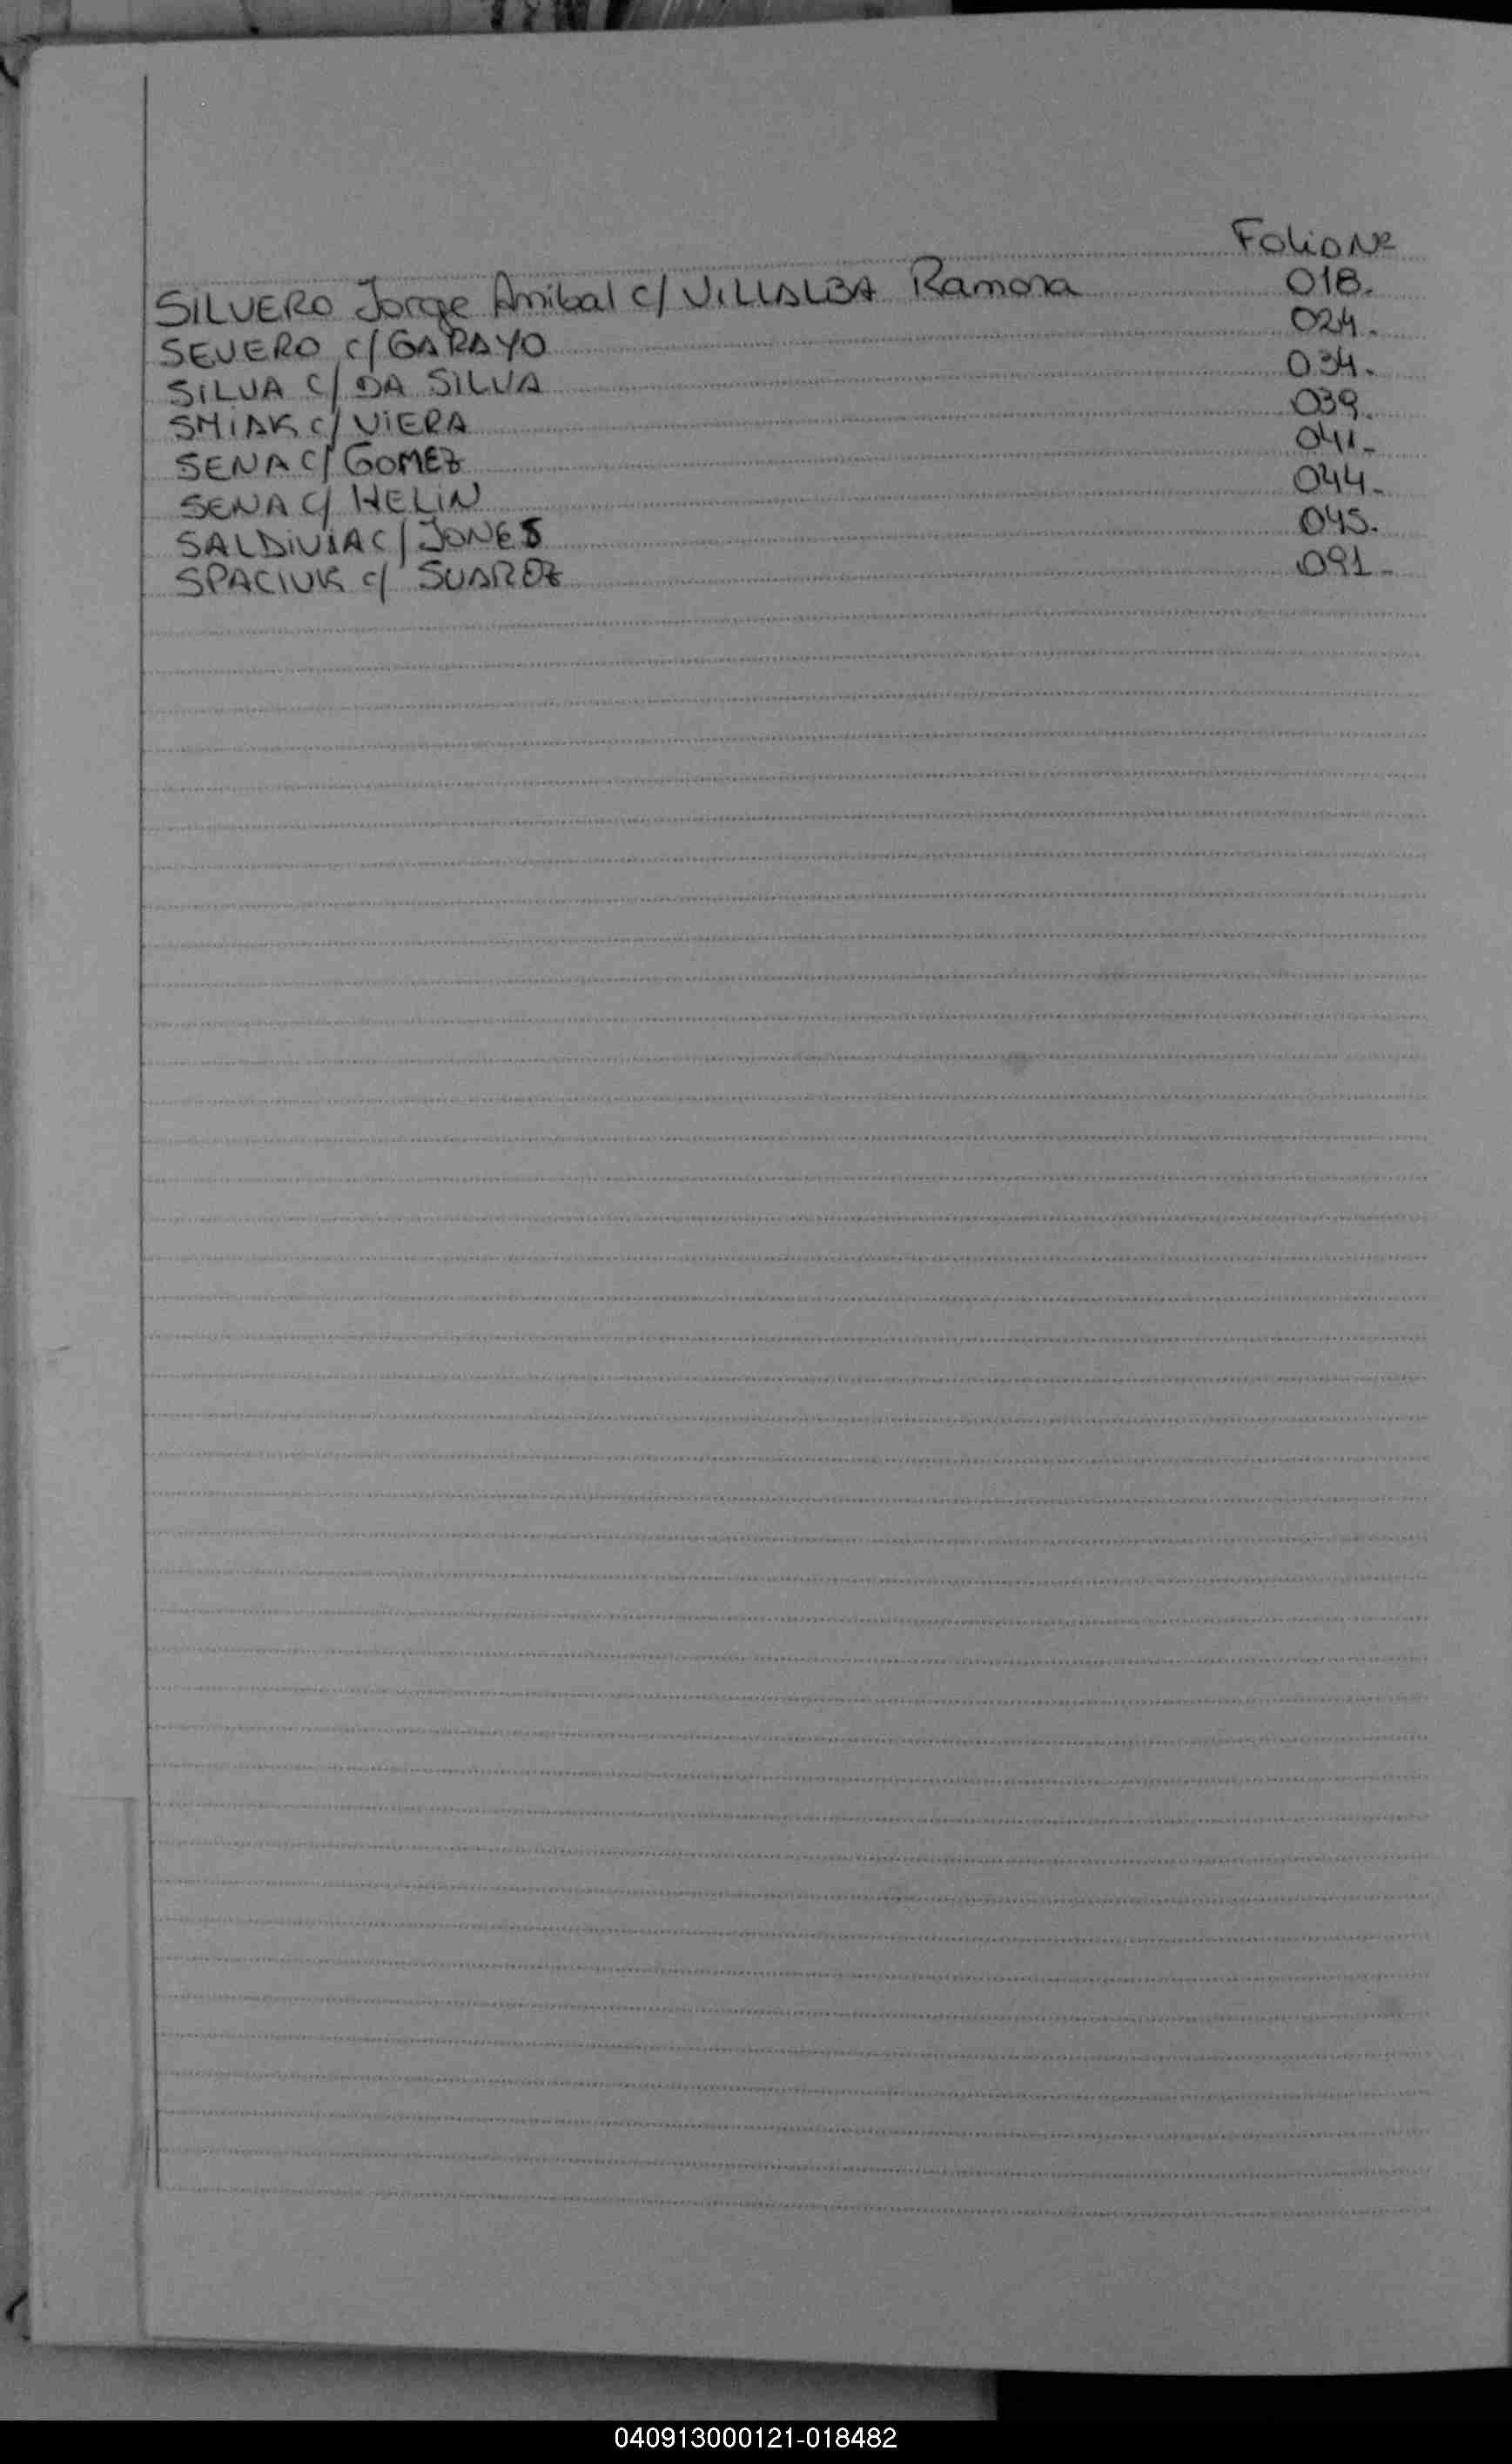 Folio Nº
SILVERO Jorge Anibal c/ VILLALBA Ramona 018.
SEVERO c/ GARAYO 024.
SILVA c/ DA SILVA 034.
SMIAK c/ VIERA 039.
SENA c/ GOMEZ 041-
SENA c/ HELIN 044-
SALDIVIA c/ JONES 045.
SPACIUK c/ SUAREZ 091-
040913000121-018482